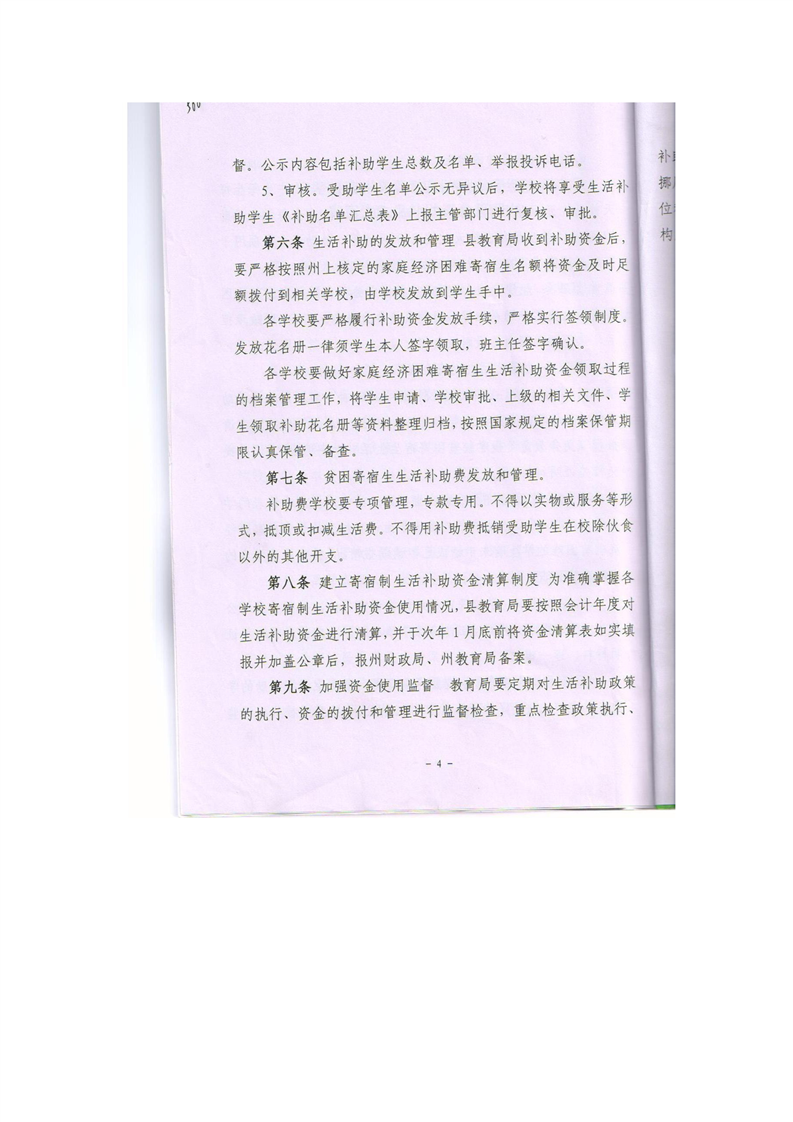 督。公示内容包括补助学生总数及名单、举报投诉电话。
5、审核。受助学生名单公示无异议后，学校将享受生活补
助学生《补助名单汇总表》上报主管部门进行复核、审批。
第六条 生活补助的发放和管理 县教育局收到补助资金后，
要严格按照州上核定的家庭经济困难寄宿生名额将资金及时足
额拨付到相关学校，由学校发放到学生手中。
各学校要严格履行补助资金发放手续，严格实行签领制度。
发放花名册一律须学生本人签字领取，班主任签字确认。
各学校要做好家庭经济困难寄宿生生活补助资金领取过程
的档案管理工作，将学生申请、学校审批、上级的相关文件、学
生领取补助花名册等资料整理归档，按照国家规定的档案保管期
限认真保管、备查。
第七条 贫困寄宿生生活补助费发放和管理。
补助费学校要专项管理，专款专用。不得以实物或服务等形
式，抵顶或扣减生活费。不得用补助费抵销受助学生在校除伙食
以外的其他开支。
第八条 建立寄宿制生活补助资金清算制度 为准确掌握各
学校寄宿制生活补助资金使用情况，县教育局要按照会计年度对
生活补助资金进行清算，并于次年1月底前将资金清算表如实填
报并加盖公章后，报州财政局、州教育局备案。
第九条 加强资金使用监督 教育局要定期对生活补助政策
的执行、资金的拨付和管理进行监督检查，重点检查政策执行、
- 4 -
补
挪
位
构